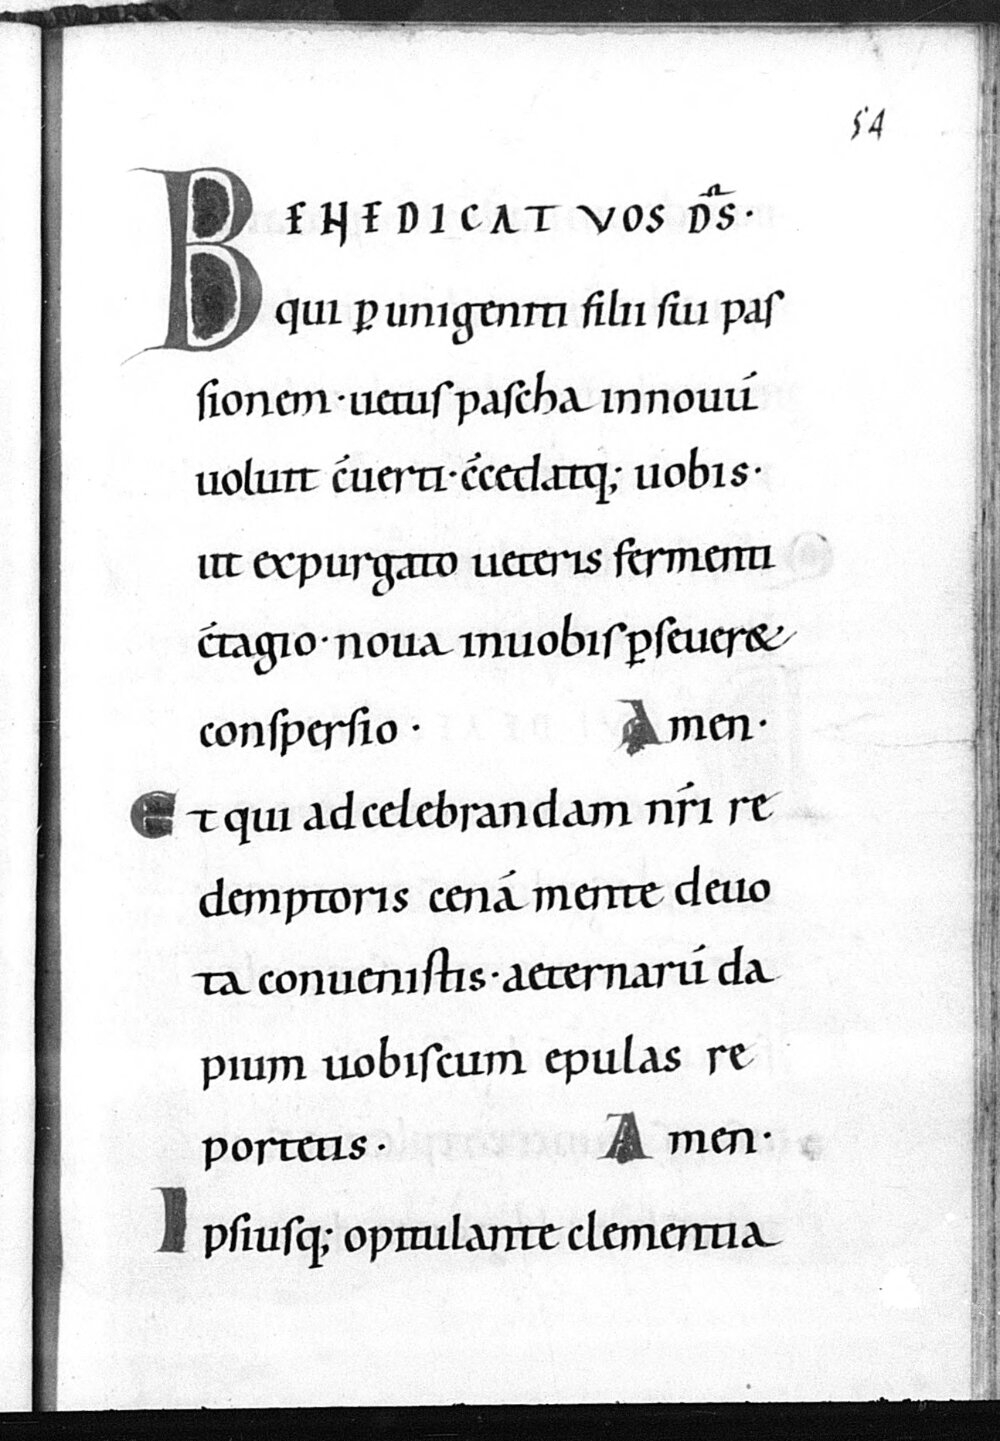 54
BENEDICAT VOS D̅S·
qui ꝑ unigeniti filii ſui paſ
ſionem· uetuſ paſcha in nouū
uoluit c̄uerti· c̄cedatq; uobis·
ut expurgato ueteris fermenti
c̄tagio· noua inuobiſ ꝑſeuer&
conſperſio · Amen·
Et qui ad celebrandam nr̄i re
demptoris cenā mente deuo
ta conueniſtis· aeternarū da
pium uobiſcum epulas re
portetis· Amen·
Ipſiuſq; opitulante clementia